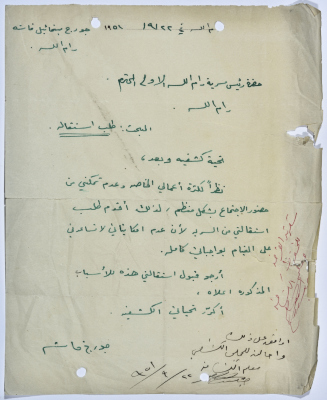 رام الله في ٢٢/٩/١٩٥١
جورج ميخائيل
رام الله
حضرة رئيس سرية رام الله الاولى المحترم
رام الله
البحث: طلب استقالة
تحية كشفيه وبعد،
نظراً لكثرة أعمالي الخاصه وعدم تمكني من
حضور الاجتماع بشكل منظم، لذلك أقدم طلب
استقالتي من السريه لأن عدم امكانياتي لا تساعدني
على القيام بواجباتي كاملة.
أرجو قبول استقالتي هذه للأسباب
المذكوره اعلاه،
أكرر تحياتي الكشفيه
جورج
اوافق على ذلك
٢٢/٩/٥١